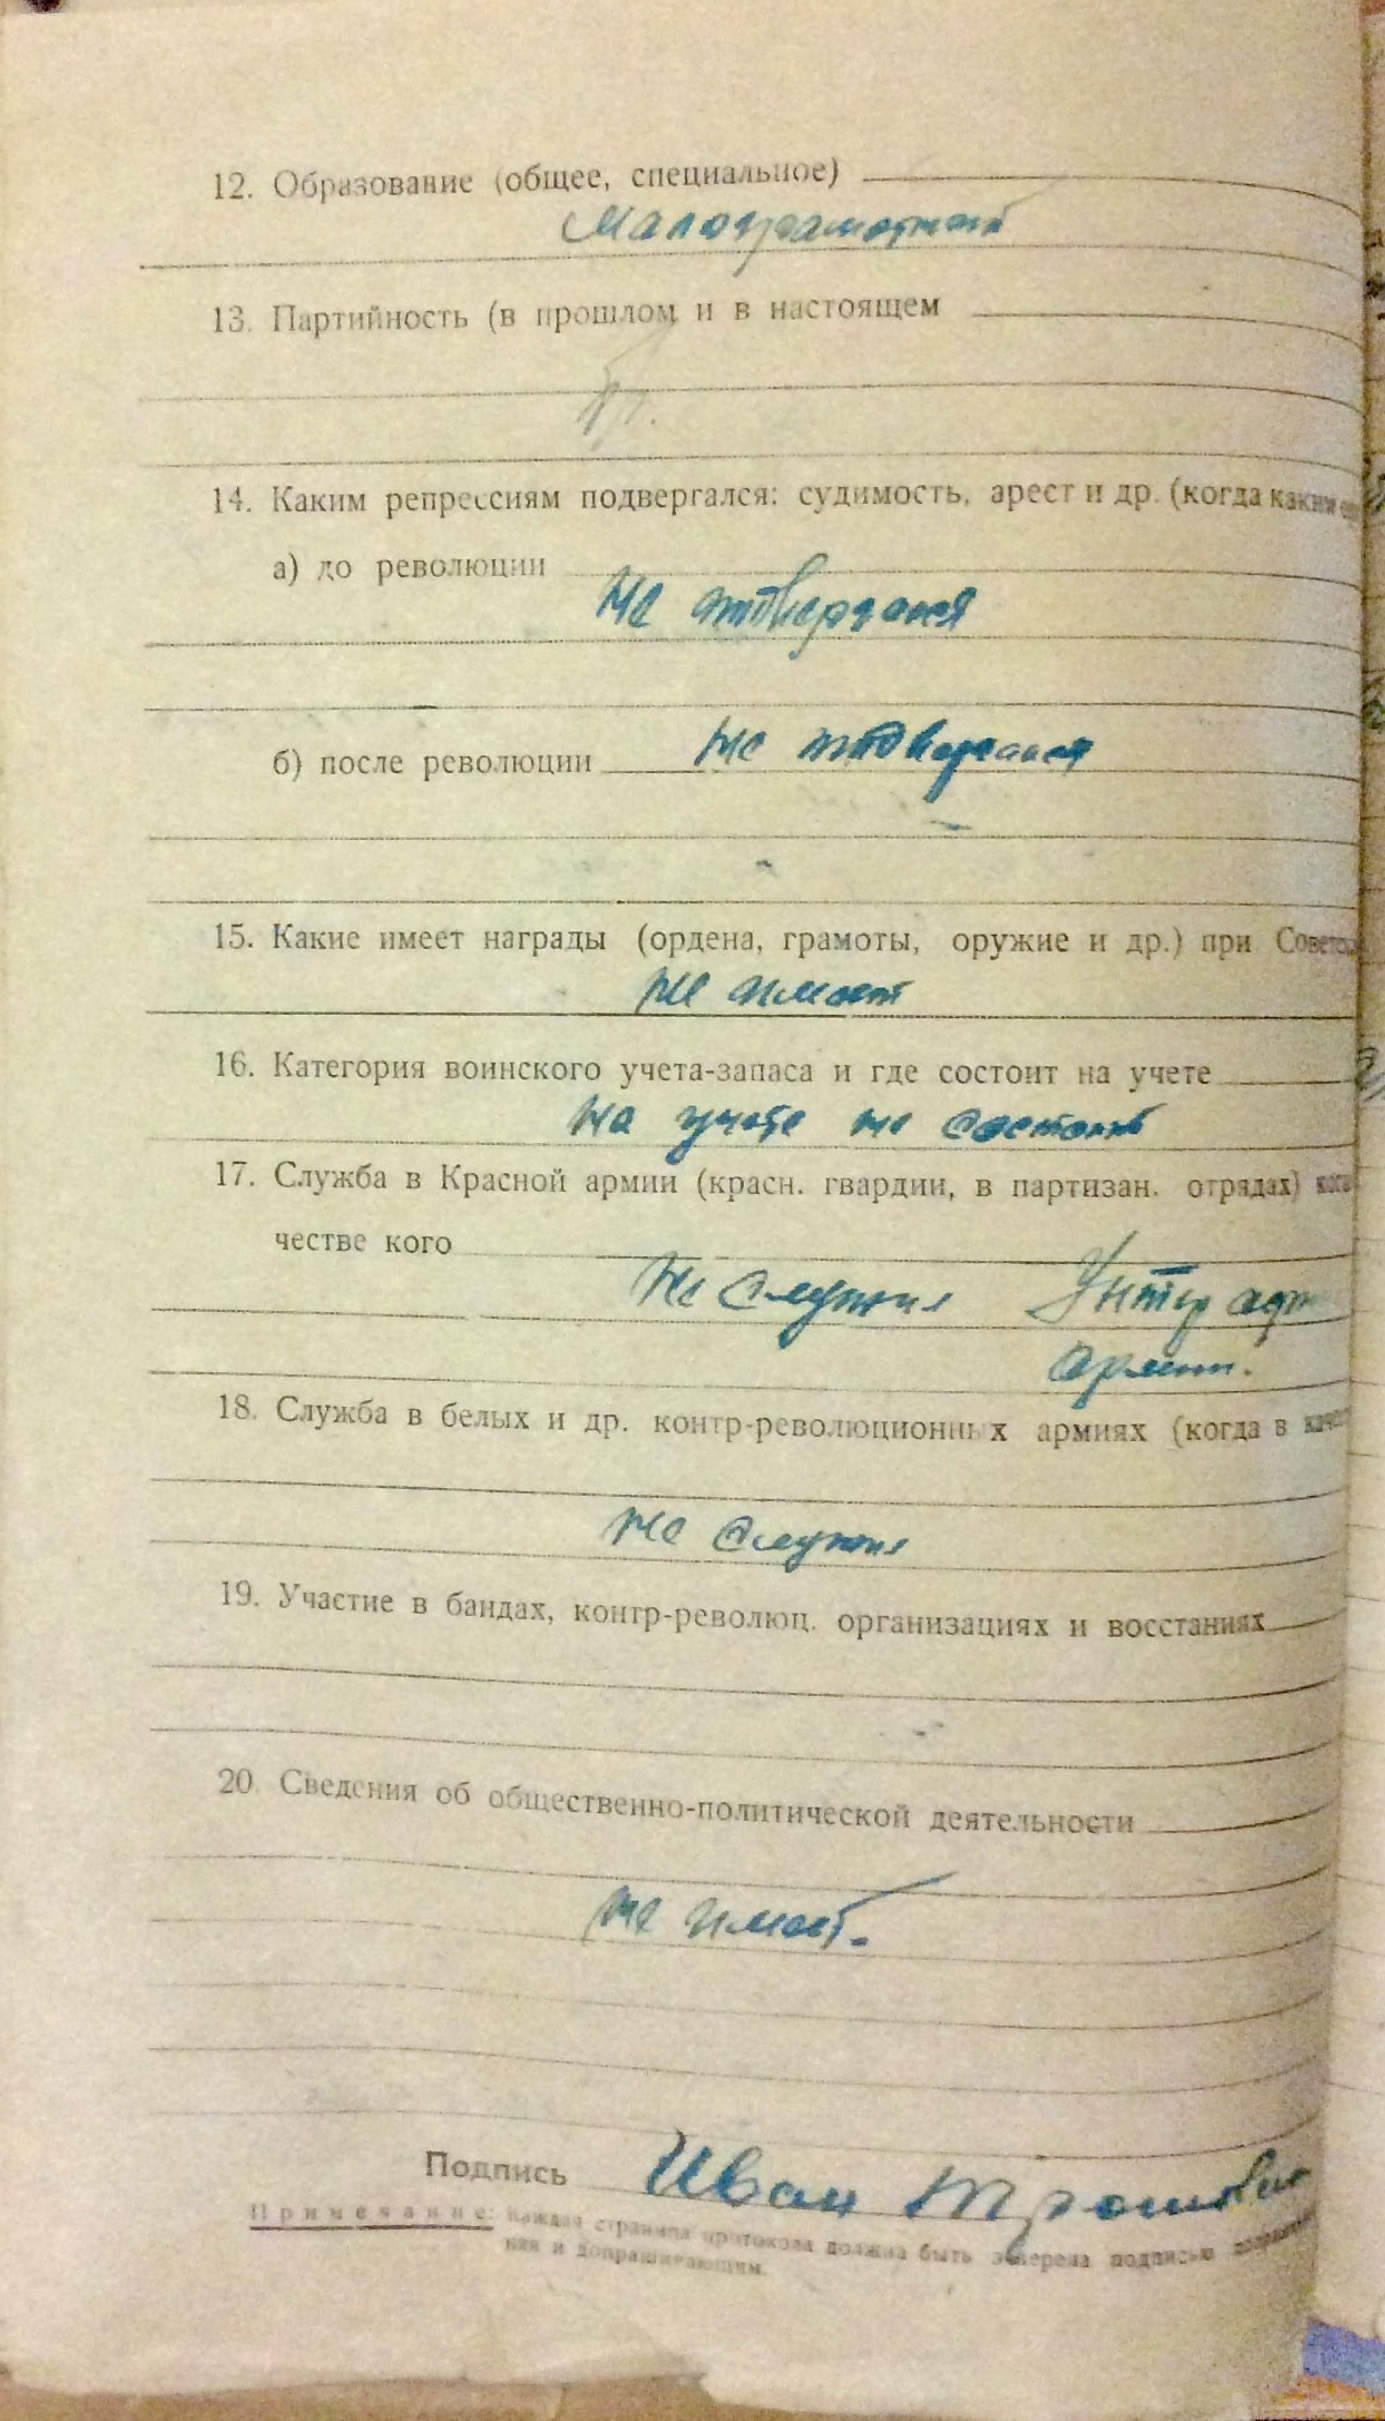 12. Образование (общее, специальное)
Малограмотный
13. Партийность (в прошлом и в настоящем
14. Каким репрессиям подвергался: судимость, арест и др. (когда каким
а) до революции
не подвергался
б) после революции не подвергался
15. Какие имеет награды (ордена, грамоты, оружие и др.) при Советск
не имеет
16. Категория воинского учета-запаса и где состоит на учете
на учете не состоит
17. Служба в Красной армии (красн. гвардии, в партизан. отрядах) кога
честве кого
не служил Унтер
18. Служба в белых и др. контр-революционных армиях (когда в качес
не служил
19. Участие в бандах, контр-революц. организациях и восстаниях
20. Сведения об общественно-политической деятельности
не имеет.
Подпись Иван
Примечание: Каждая страница протокола должна быть заверена подписью
ния и допрашивающим.